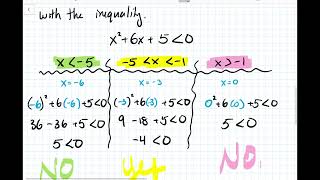 with the inequality.
x²+6x+5<0
x<-5 -5<x<-1 x>-1
x=-6 x=-3 x=0
(-6)²+6(-6)+5<0 (-3)²+6(3)+5<0 0²+6(0)+5<0
36-36+5<0 9-18+5<0 5<0
5<0 -4<0
NO yes NO